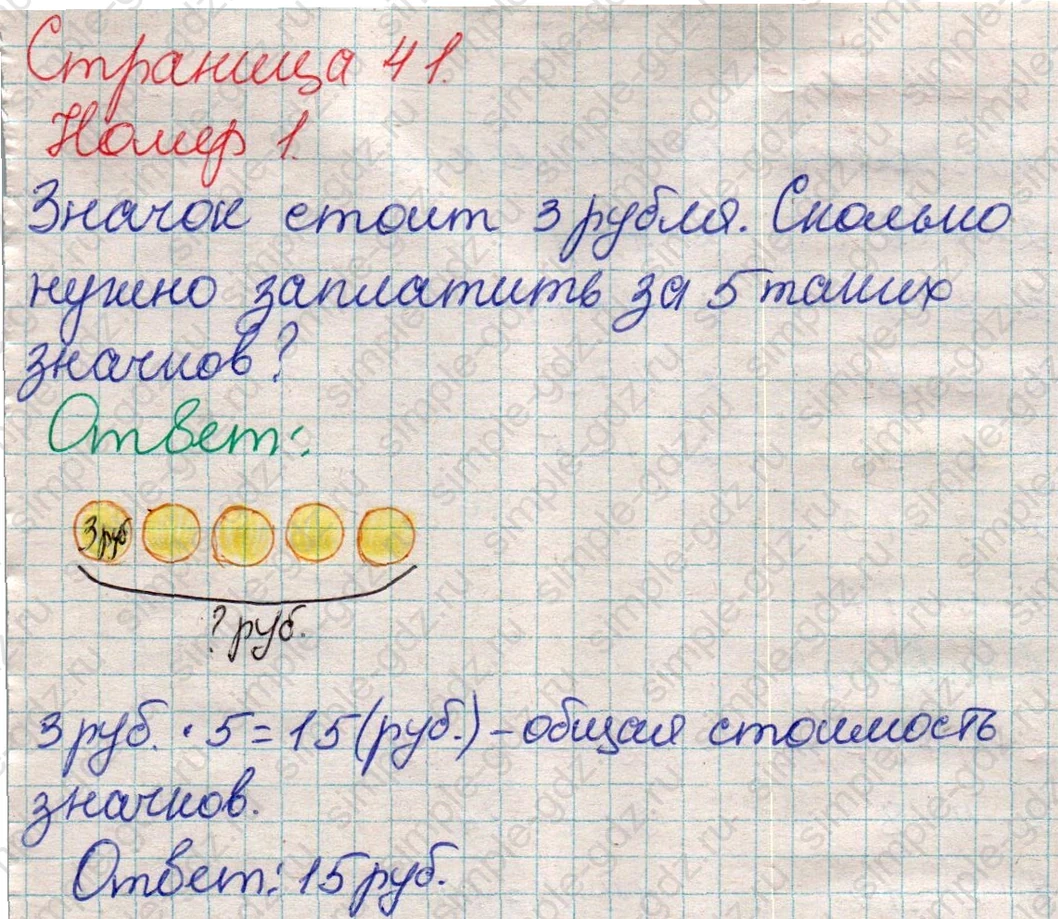 Страница 41.
Номер 1.
Значок стоит 3 рубля. Сколько
нужно заплатить за 5 таких
значков?
Ответ:
3 руб
? руб.
3 руб. · 5 = 15 (руб.) – общая стоимость
значков.
Ответ: 15 руб.
simple-gdz.ru